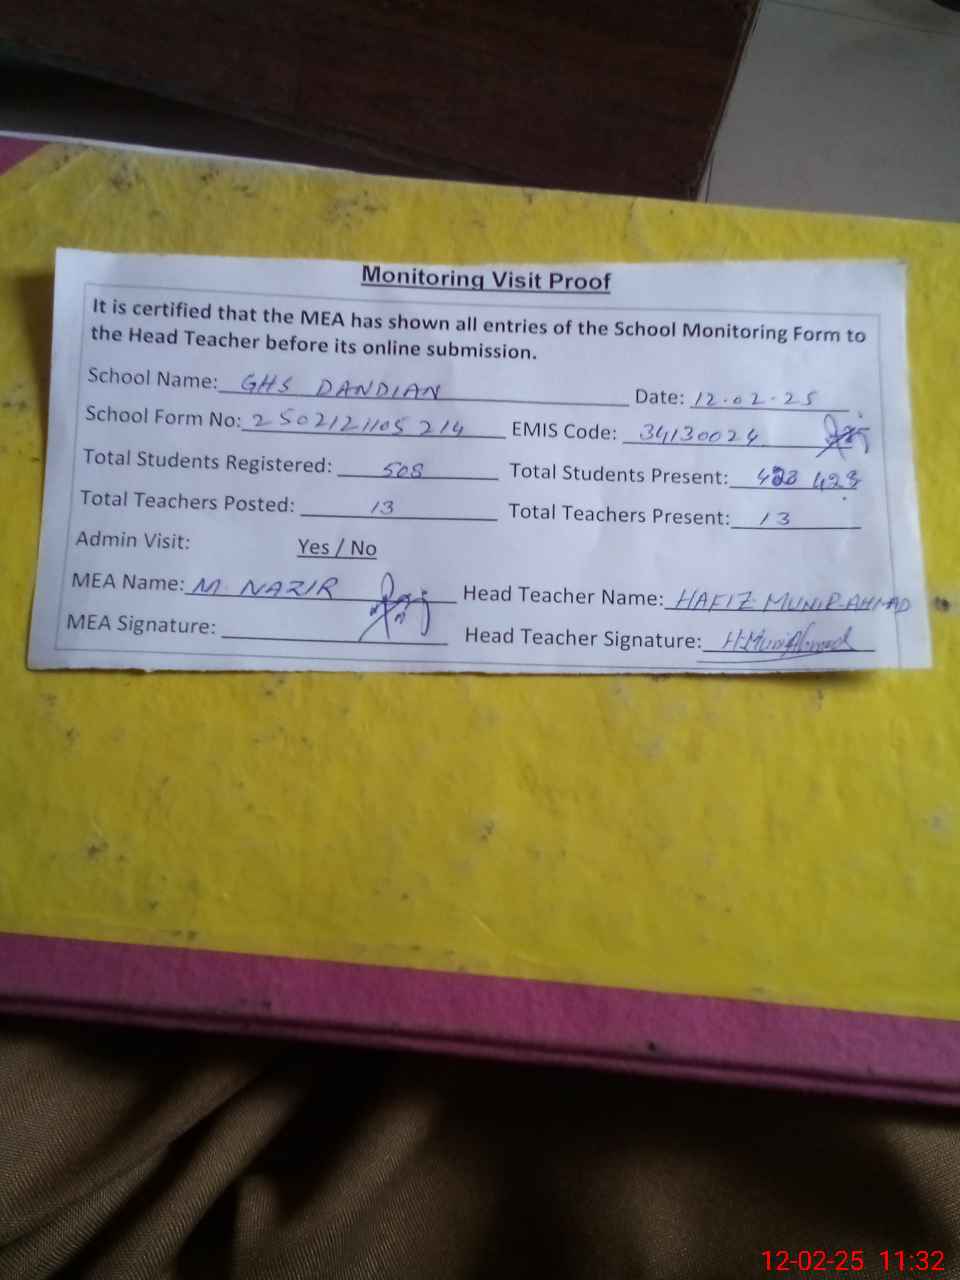 Monitoring Visit Proof
It is certified that the MEA has shown all entries of the School Monitoring Form to
the Head Teacher before its online submission.
School Name: GHS DANDIAN Date: 12.02.25
School Form No: 2502121105214 EMIS Code: 34130024
Total Students Registered: 508 Total Students Present: 423 423
Total Teachers Posted: 13 Total Teachers Present: 13
Admin Visit: Yes / No
MEA Name: M. NAZIR Head Teacher Name: HAFIZ MUNIR AHMAD
MEA Signature: Head Teacher Signature: H.MunirAhmad
12-02-25 11:32